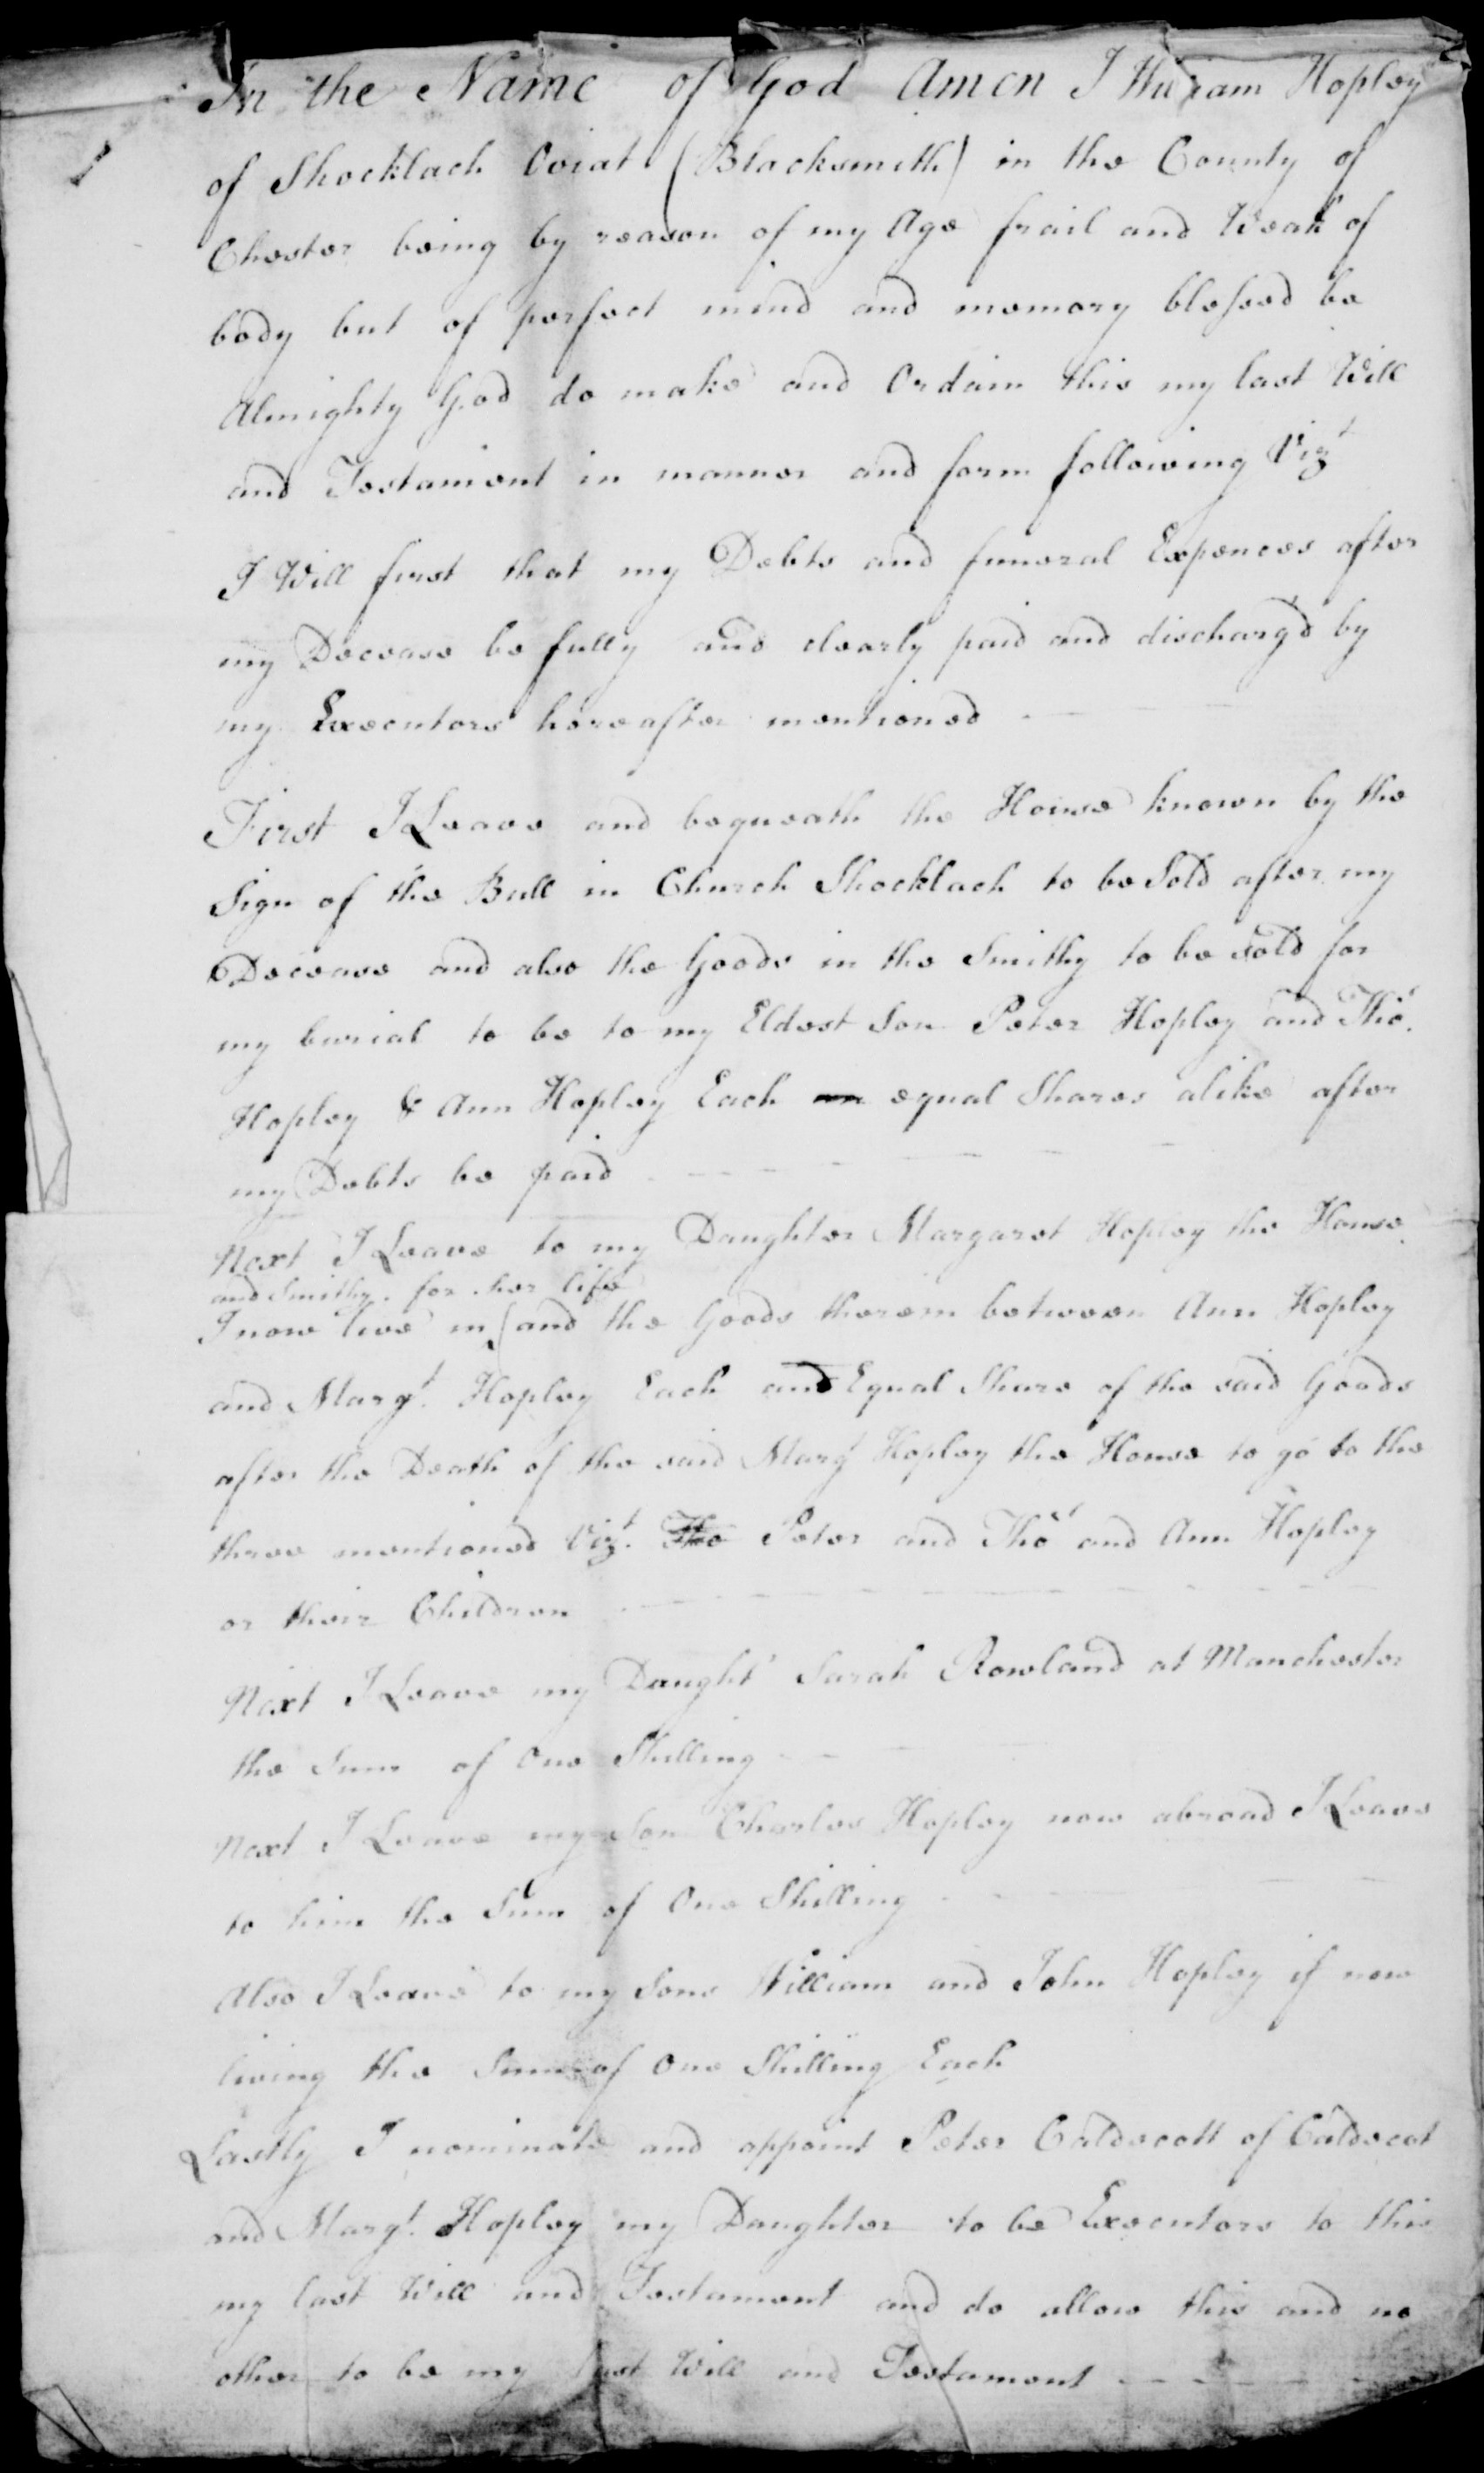 In the Name of God Amen I William Hopley
of Shocklach Oviat (Blacksmith) in the County of
Chester being by reason of my Age frail and Weak of
body but of perfect mind and memory blessed be
Almighty God do make and Ordain this my last Will
and Testament in manner and form following Vizt
I Will first that my Debts and funeral Expences after
my Decease be fully and clearly paid and discharg'd by
my Executors hereafter mentioned
First I Leave and bequeath the House known by the
Sign of the Bull in Church Shocklach to be Sold after my
Decease and also the Goods in the Smithy to be sold for
my burial to be to my Eldest Son Peter Hopley and Thos.
Hopley & Ann Hopley Each an equal Shares alike after
my Debts be paid
Next I Leave to my Daughter Margaret Hopley the House
and Smithy for her life
I now live in and the Goods therein between Ann Hopley
and Margt. Hopley Each and Equal Share of the said Goods
after the Death of the said Margt Hopley the House to go to the
three mentioned Vizt. Tho Peter and Thos and Ann Hopley
or their Children
Next I Leave my Daughtr Sarah Rowland at Manchester
the Sum of One Shilling
Next I Leave my Son Charles Hopley now abroad I Leave
to him the Sum of One Shilling
Also I Leave to my Sons William and John Hopley if now
living the Sum of One Shilling Each
Lastly I nominate and appoint Peter Caldecott of Caldecot
and Margt. Hopley my Daughter to be Executors to this
my last Will and Testament and do allow this and no
other to be my last Will and Testament